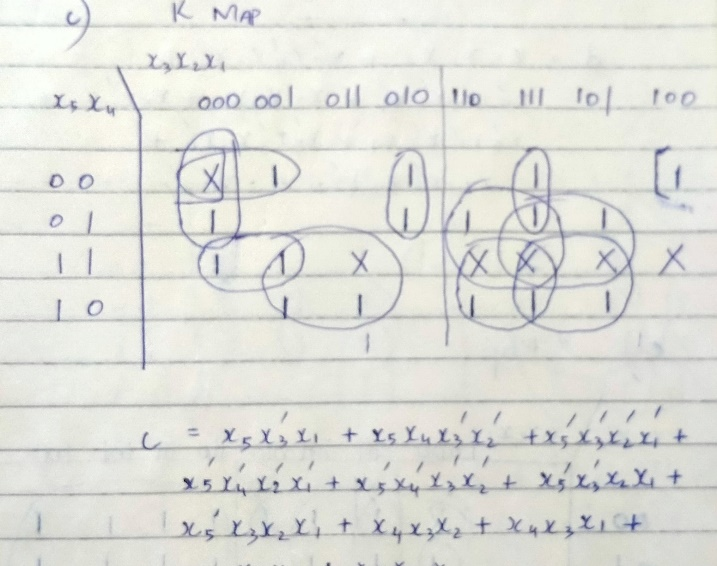 c) K MAP
x3x2x1
x5x4 000 001 011 010 110 111 101 100
00 X 1 1 1 [1
01 1 1 1 1 1
11 1 1 X X X X X
10 1 1 1 1 1
1
c = x5x3'x1 + x5x4x3'x2' + x5'x3'x2'x1' +
x5'x4'x2'x1' + x5'x4'x3'x2' + x5'x3'x2x1' +
x5'x3x2x1 + x4x3x2 + x4x3x1 +